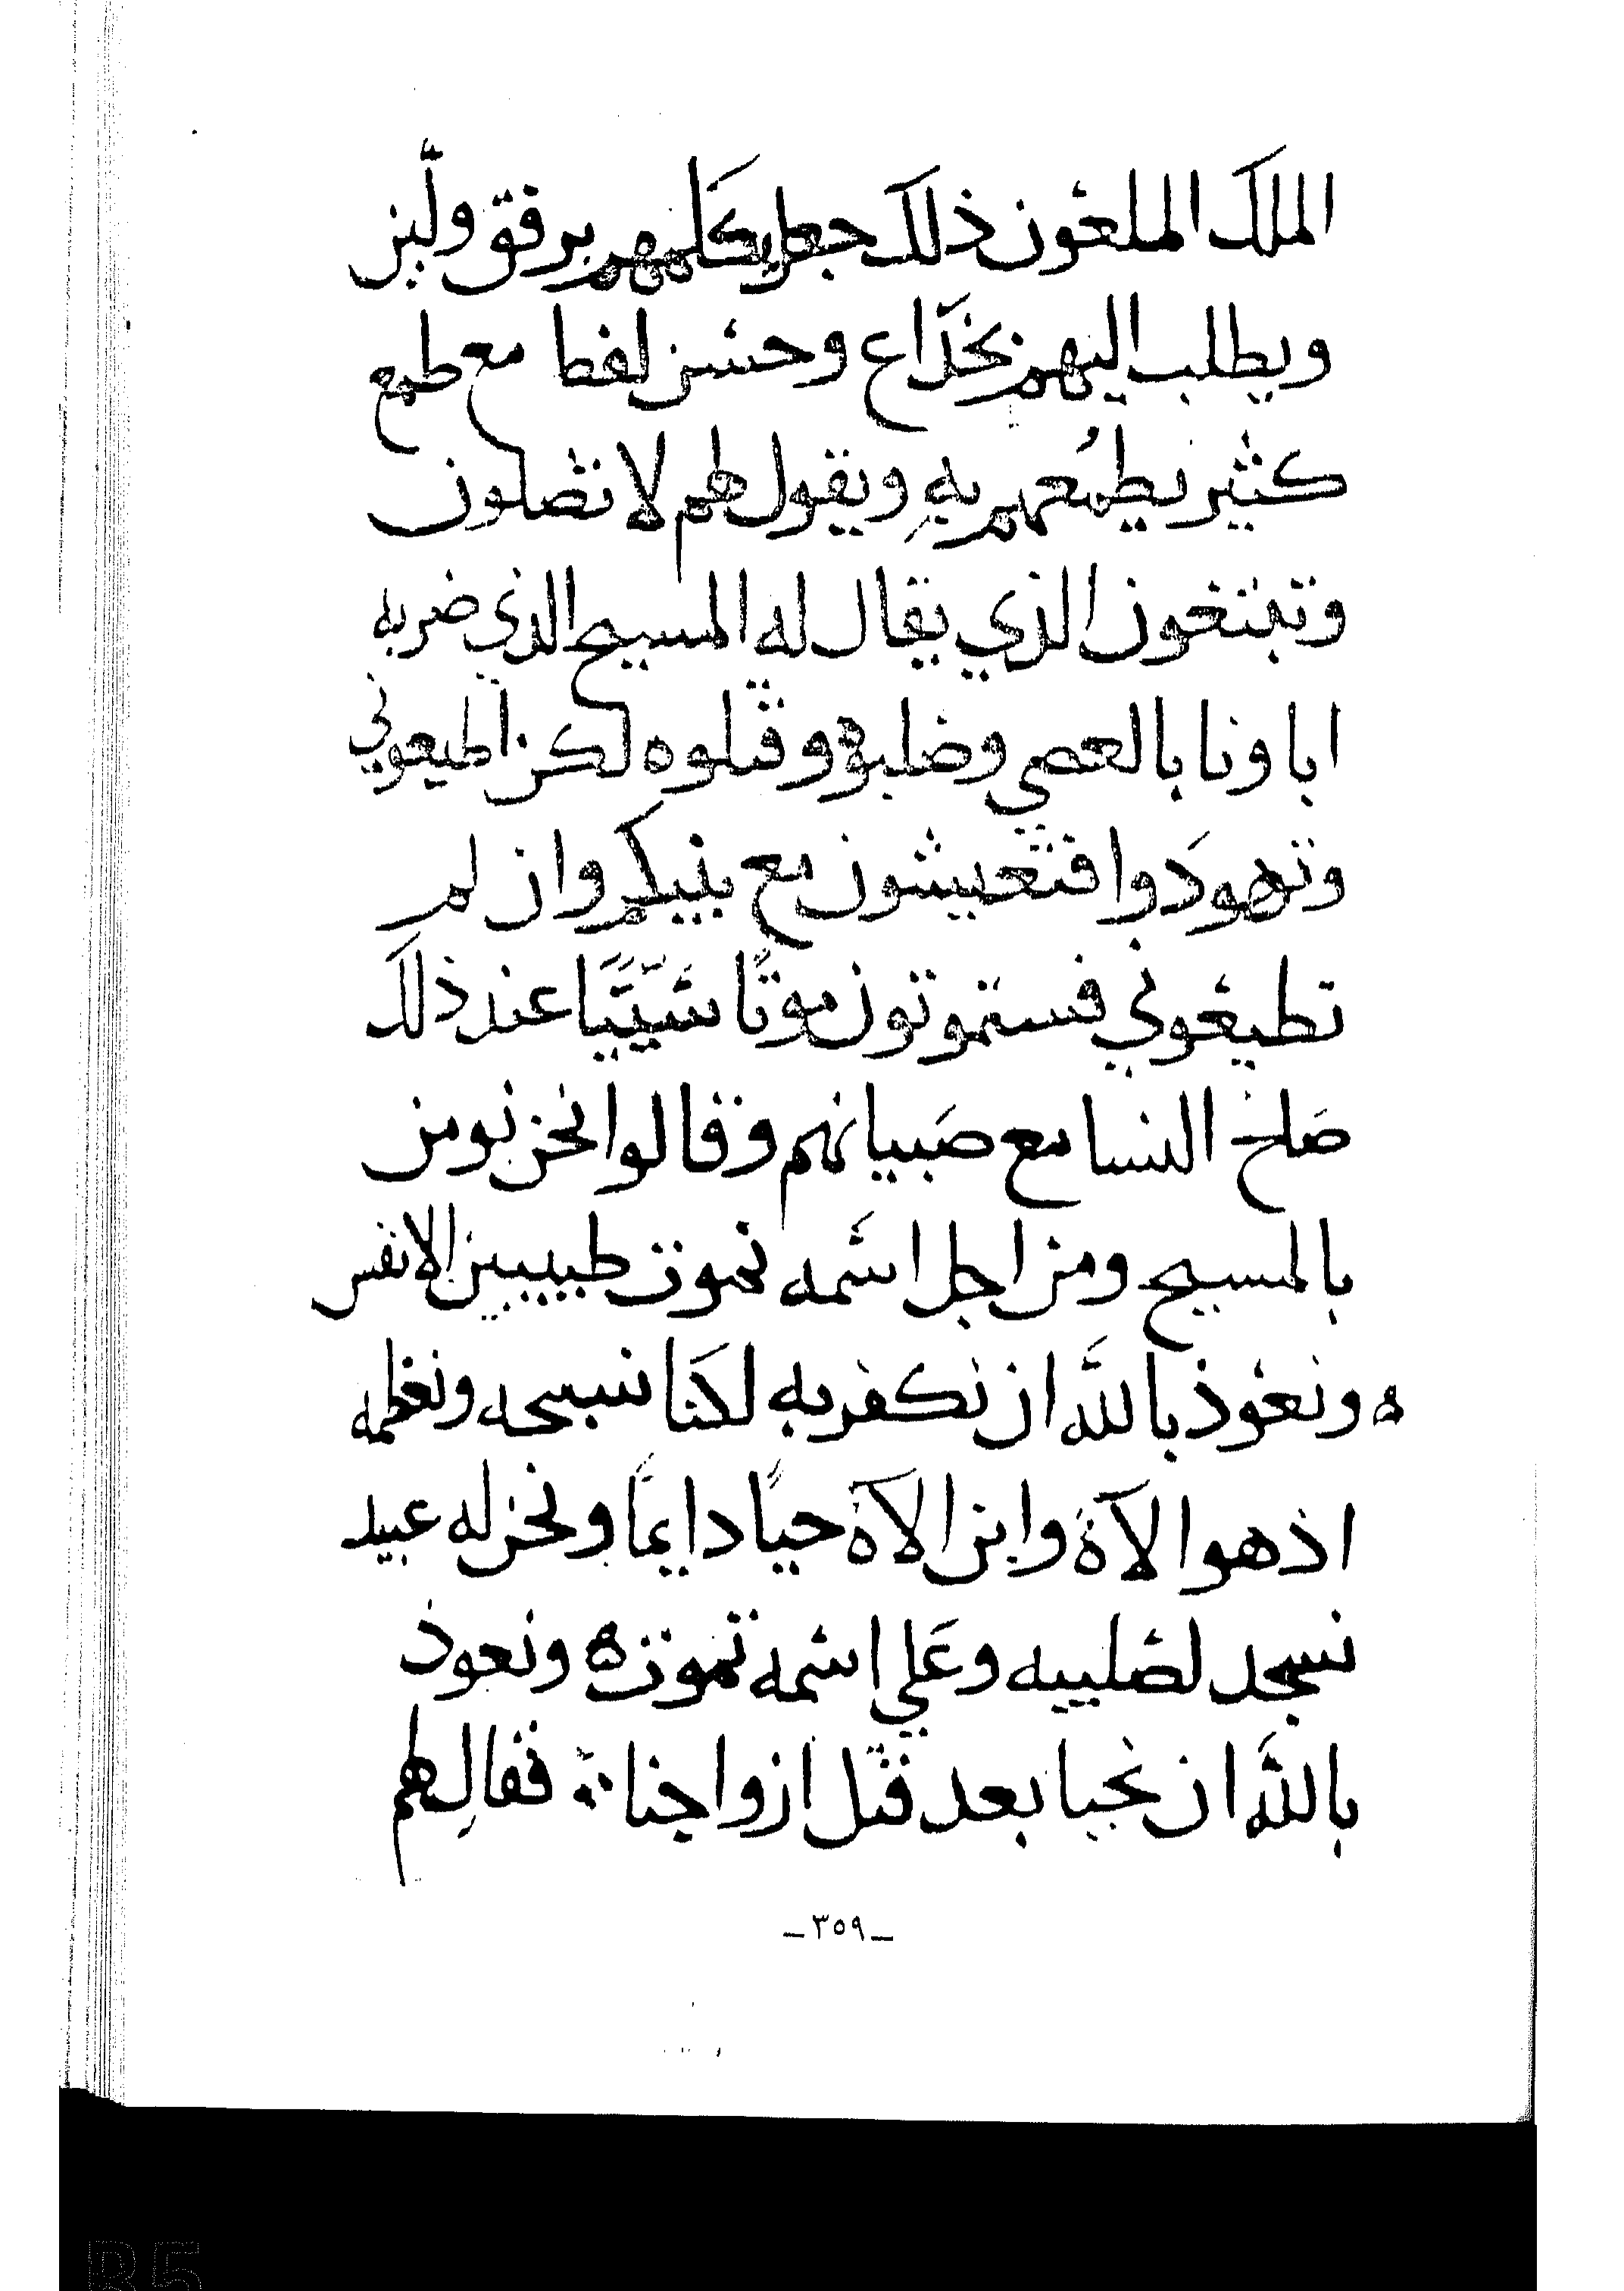 الملك الملعون ذلك جعل يكلمهم برفق ولّين
ويطلب اليهم بخدّاع وحسن لفظ مع طمع
كثير يطمُعهم بهِ ويقول لهم لا تضلون
وتبتغون الذي يقال له المسيح الذي ضربه
اباونا بالعصي وصلبوة وقتلوه لكن اطيعوني
وتهودَوا فتعيشون مع بنيكم وان لم
تطيعوني فستموتون موتًا شيّيًا عند ذلك
صَاح النسا مع صَبيانهم وقالوا نحن نومن
بالمسيح ومن اجل اسمه نموت طيبين الانفس
ه ونعوذ باللَّه ان نكفر به لكنَا نسبحه ونعظمه
اذ هو الآة وابن الآة حيًا دايمًا ونحن له عبيد
نسجد لصليبه وعَلي اسمه نموت ه ونعوذ
باللَّه ان نحيا بعد قتل ازواجنا ؞ فقال لهم
_٣٥٩_